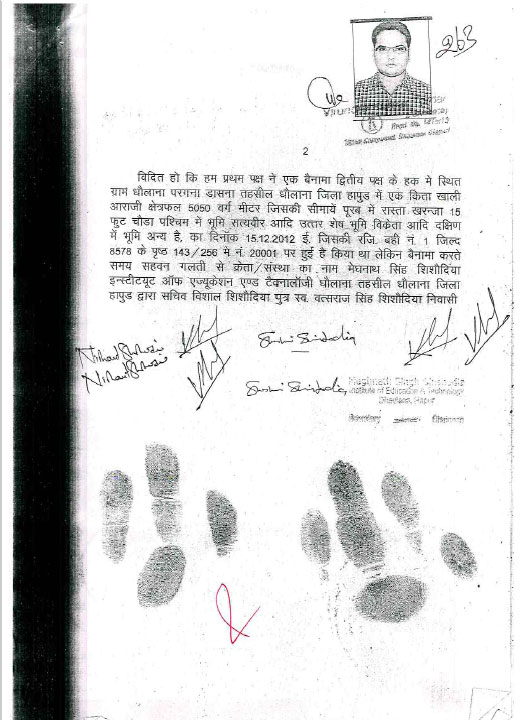 263
2
विदित हो कि हम प्रथम पक्ष ने एक बैनामा द्वितीय पक्ष के हक मे स्थित
ग्राम धौलाना परगना डासना तहसील धौलाना जिला हापुड में एक किता खाली
आराजी क्षेत्रफल 5050 वर्ग मीटर जिसकी सीनायें पूरब मे रास्ता खरन्जा 15
फुट चौडा पश्चिम में भूमि सत्यवीर आदि उत्तर शेष भूमि विक्रेता आदि दक्षिण
में भूमि अन्य है, का दिनॉक 15.12.2012 ई. जिसकी रजि. बही नं. 1 जिल्द
8578 के पृष्ठ 143/256 मे नं. 20001 पर हुई है किया था लेकिन बैनामा करते
समय सहवन गलती से क्रेता/संस्था का नाम मेघनाथ सिंह शिशौदिया
इन्स्टीटयूट ऑफ एज्यूकेशन एण्ड टैक्नालॉजी धौलाना तहसील धौलाना जिला
हापुड द्वारा सचिव विशाल शिशौदिया पुत्र स्व. वत्सराज सिंह शिशौदिया निवासी
Institute of Education & Technology
Dhaulana, Hapur
Secretary Chairman